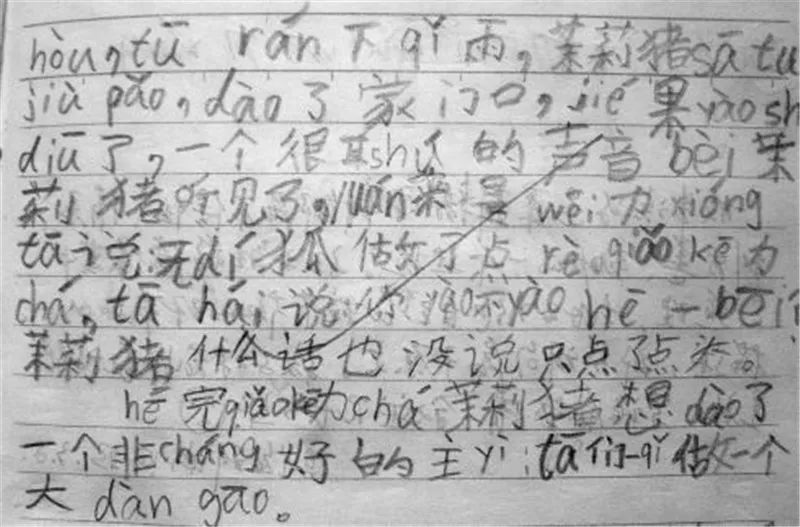 hòu,tū rán 下 qǐ 雨,茉莉猪sā tuǐ
jiù pǎo,dào 了 家 门口,jié 果yào sh
diū 了,一个 很 shú 的 声音 bèi 茉
莉 猪听见了,yuán来 是 wēi 力 xióng
tā 说:无dí 狐 估做了点 rè qiǎo kē 力
chá,tā hái 说 你 yào不yào hē 一 bēi
茉莉 猪 什么 话 也 没说 只点了点 头。
hē 完qiǎo kē力 chá 茉莉猪 想 dào 了
一个 非cháng 好 的 主 yì:tā 们一qǐ 做一个
大 dàn gāo。